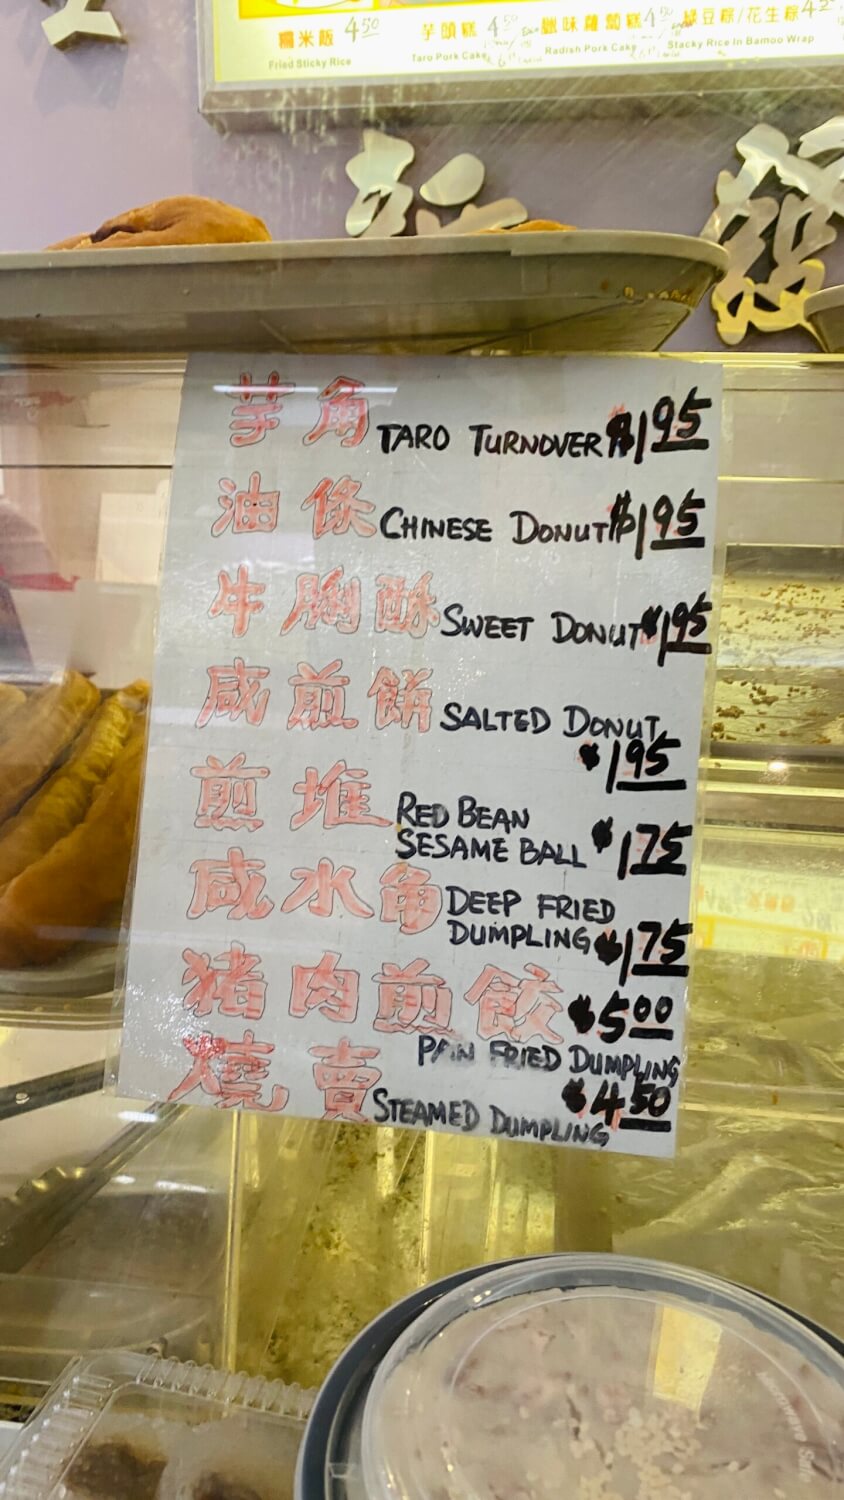 糯米飯 4.50 芋頭糕 4.50 臘味蘿蔔糕 4.50 綠豆粽/花生粽 4.25
Fried Sticky Rice Taro Pork Cake Radish Pork Cake Stacky Rice In Bamoo Wrap
芋角 TARO TURNOVER $1.95
油條 CHINESE DONUT $1.95
牛脷酥 SWEET DONUT $1.95
咸煎餅 SALTED DONUT
$1.95
煎堆 RED BEAN
SESAME BALL $1.75
咸水角 DEEP FRIED
DUMPLING $1.75
豬肉煎餃 $5.00
PAN FRIED DUMPLING
燒賣 STEAMED DUMPLING $4.50